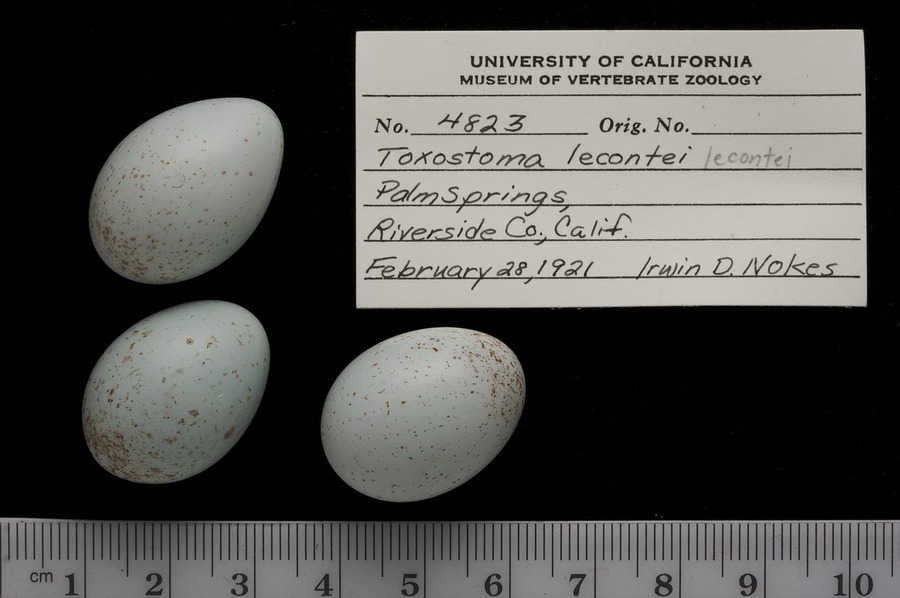 UNIVERSITY OF CALIFORNIA
MUSEUM OF VERTEBRATE ZOOLOGY
No. 4823 Orig. No.
Toxostoma lecontei lecontei
Palm Springs,
Riverside Co., Calif.
February 28, 1921 Irwin D. Nokes
cm 1 2 3 4 5 6 7 8 9 10